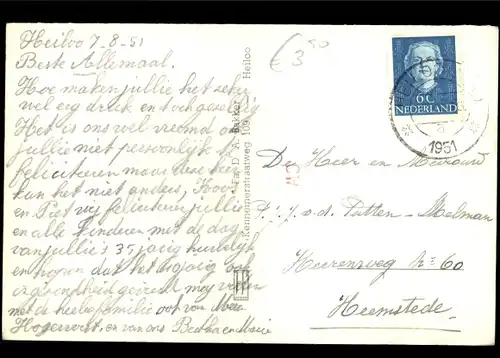 Heiloo 7-8-51
Beste Allemaal.
Hoe maken jullie het zeker
wel erg druk en toch gezellig
Het is ons wel vreemd om
jullie niet persoonlijk te
feliciteren maar deze keer
kan het niet anders, Koos
en Piet wij feliciteren jullie
en alle kinderen met de dag
van jullie's 35 jarig huwelijk
en hopen dat het nog ook
in gezondheid mag
met de heele familie ook van Mevr
Hogervorst, en van ons Bertha en Marie
€ 3,50
Fa. D. A. Bakker
Kennemerstraatweg 109 Heiloo
CW
6 C
NEDERLAND
1951
De Heer en Mevrouw
P. J. v. d. Putten-Moelman
Heerenweg No 60
Heemstede